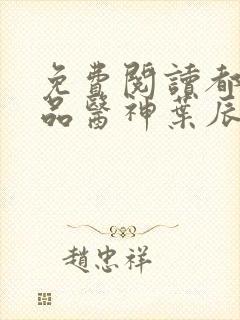 免費閱讀都
品醫神葉辰
趙忠祥